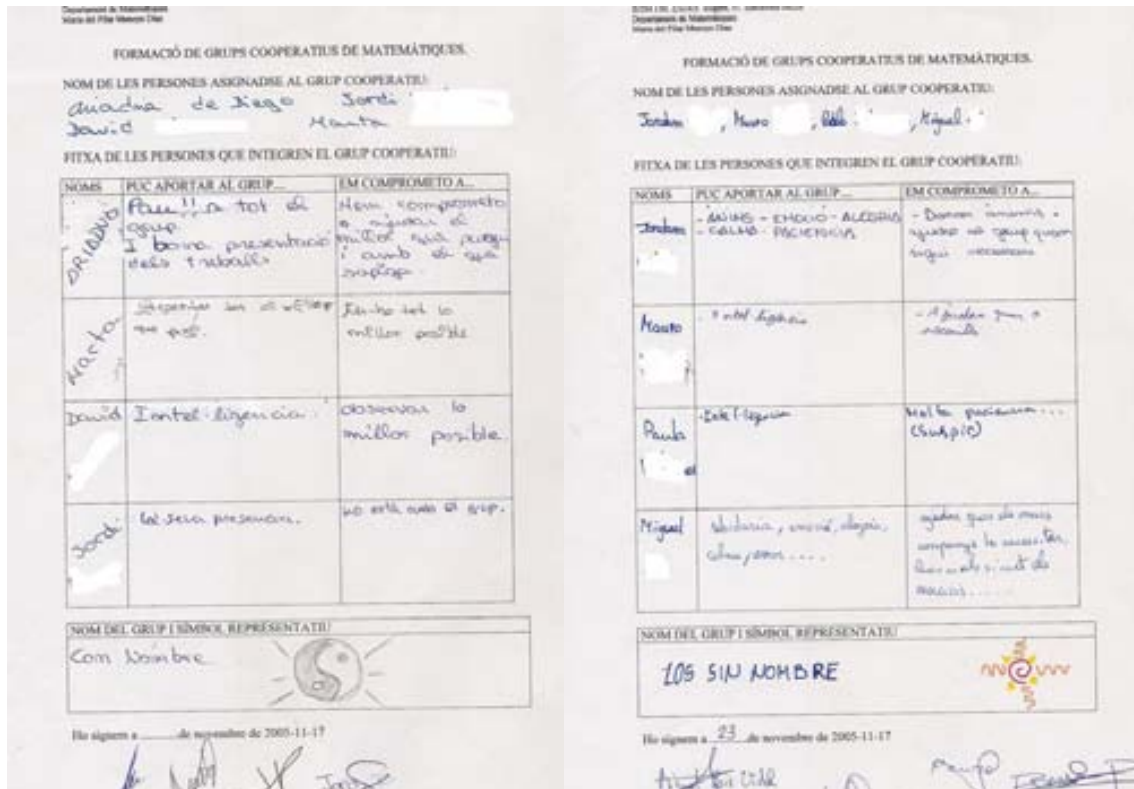 Departament de Matemàtiques
María del Pilar Menoyo Díaz
FORMACIÓ DE GRUPS COOPERATIUS DE MATEMÀTIQUES.
NOM DE LES PERSONES ASIGNADSE AL GRUP COOPERATIU:
Ariadna de Diego Jordi
David Marta
FITXA DE LES PERSONES QUE INTEGREN EL GRUP COOPERATIU:
NOMS PUC APORTAR AL GRUP... EM COMPROMETO A...
ARIADNA
Pau!! a tot el
grup
I bona presentació
dels treballs
Hem comprometo
a ajudar el
millor que pugui
i amb el que
sapiga
Marta
fer-ho tot lo
millor posible
David
Intel·ligencia.
observar lo
millor posible.
Jordi
La seva presencia.
no està amb el grup.
NOM DEL GRUP I SÍMBOL REPRESENTATIU
Com Nombre
Ho signem a de novembre de 2005-11-17
Departament de Matemàtiques
María del Pilar Menoyo Díaz
FORMACIÓ DE GRUPS COOPERATIUS DE MATEMÀTIQUES.
NOM DE LES PERSONES ASIGNADSE AL GRUP COOPERATIU:
Jordan , Mauro , , Miguel
FITXA DE LES PERSONES QUE INTEGREN EL GRUP COOPERATIU:
NOMS PUC APORTAR AL GRUP... EM COMPROMETO A...
Jordan
- ÀNIMS - EMOCIÓ - ALEGRIA
- CALMA - PACIENCIA
- Donar ànims i
ajudar al grup quan
sigui necessari
Mauro
- Intel·ligència
- Ajudar
Paula
- Intel·ligencia
Molta paciencia...
(Suspir)
Miguel
, emoció, alegria,
calma, ....
ajudar que els meus
companys
NOM DEL GRUP I SÍMBOL REPRESENTATIU
LOS SIN NOMBRE
Ho signem a 23 de novembre de 2005-11-17